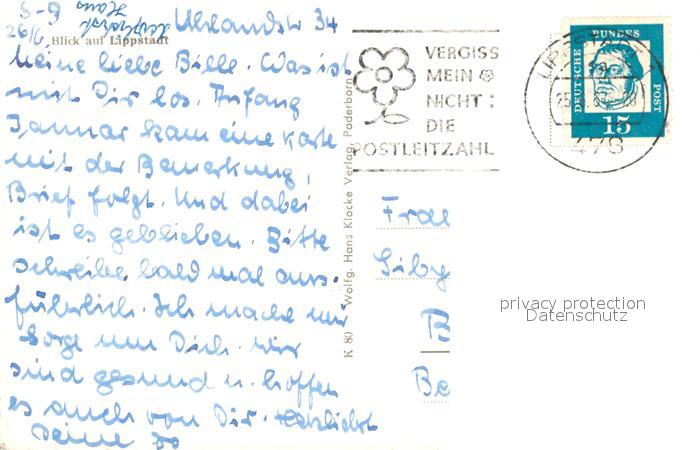 Uhlandstr 34
26/6
Blick auf Lippstadt
Meine liebe Bille. Was ist
mit Dir los. Anfang
Januar kam eine Karte
mit der Bemerkung,
Brief folgt. Und dabei
ist es geblieben. Bitte
schreibe bald mal aus-
führlich. Ich mache mir
Sorge um Dich. Wir
sind gesund u. hoffen
es auch von Dir. Herzlichst
Deine
K 80 Wolfg. Hans Klocke Verlag, Paderborn
VERGISS
MEIN
NICHT:
DIE
POSTLEITZAHL
LIPPSTADT
478
DEUTSCHE BUNDES POST
15
Frau
B
Be
privacy protection
Datenschutz